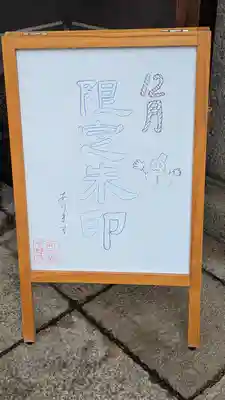 12月
限定朱印
あります